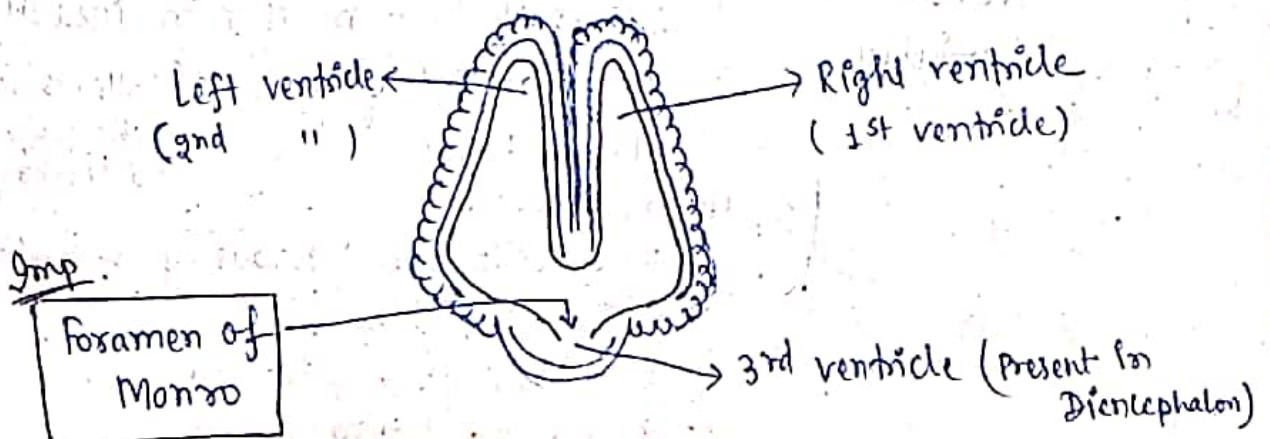 Left ventricle
(2nd " )
Right ventricle
( 1st ventricle)
Imp.
Foramen of
Monro
3rd ventricle (Present in
Diencephalon)